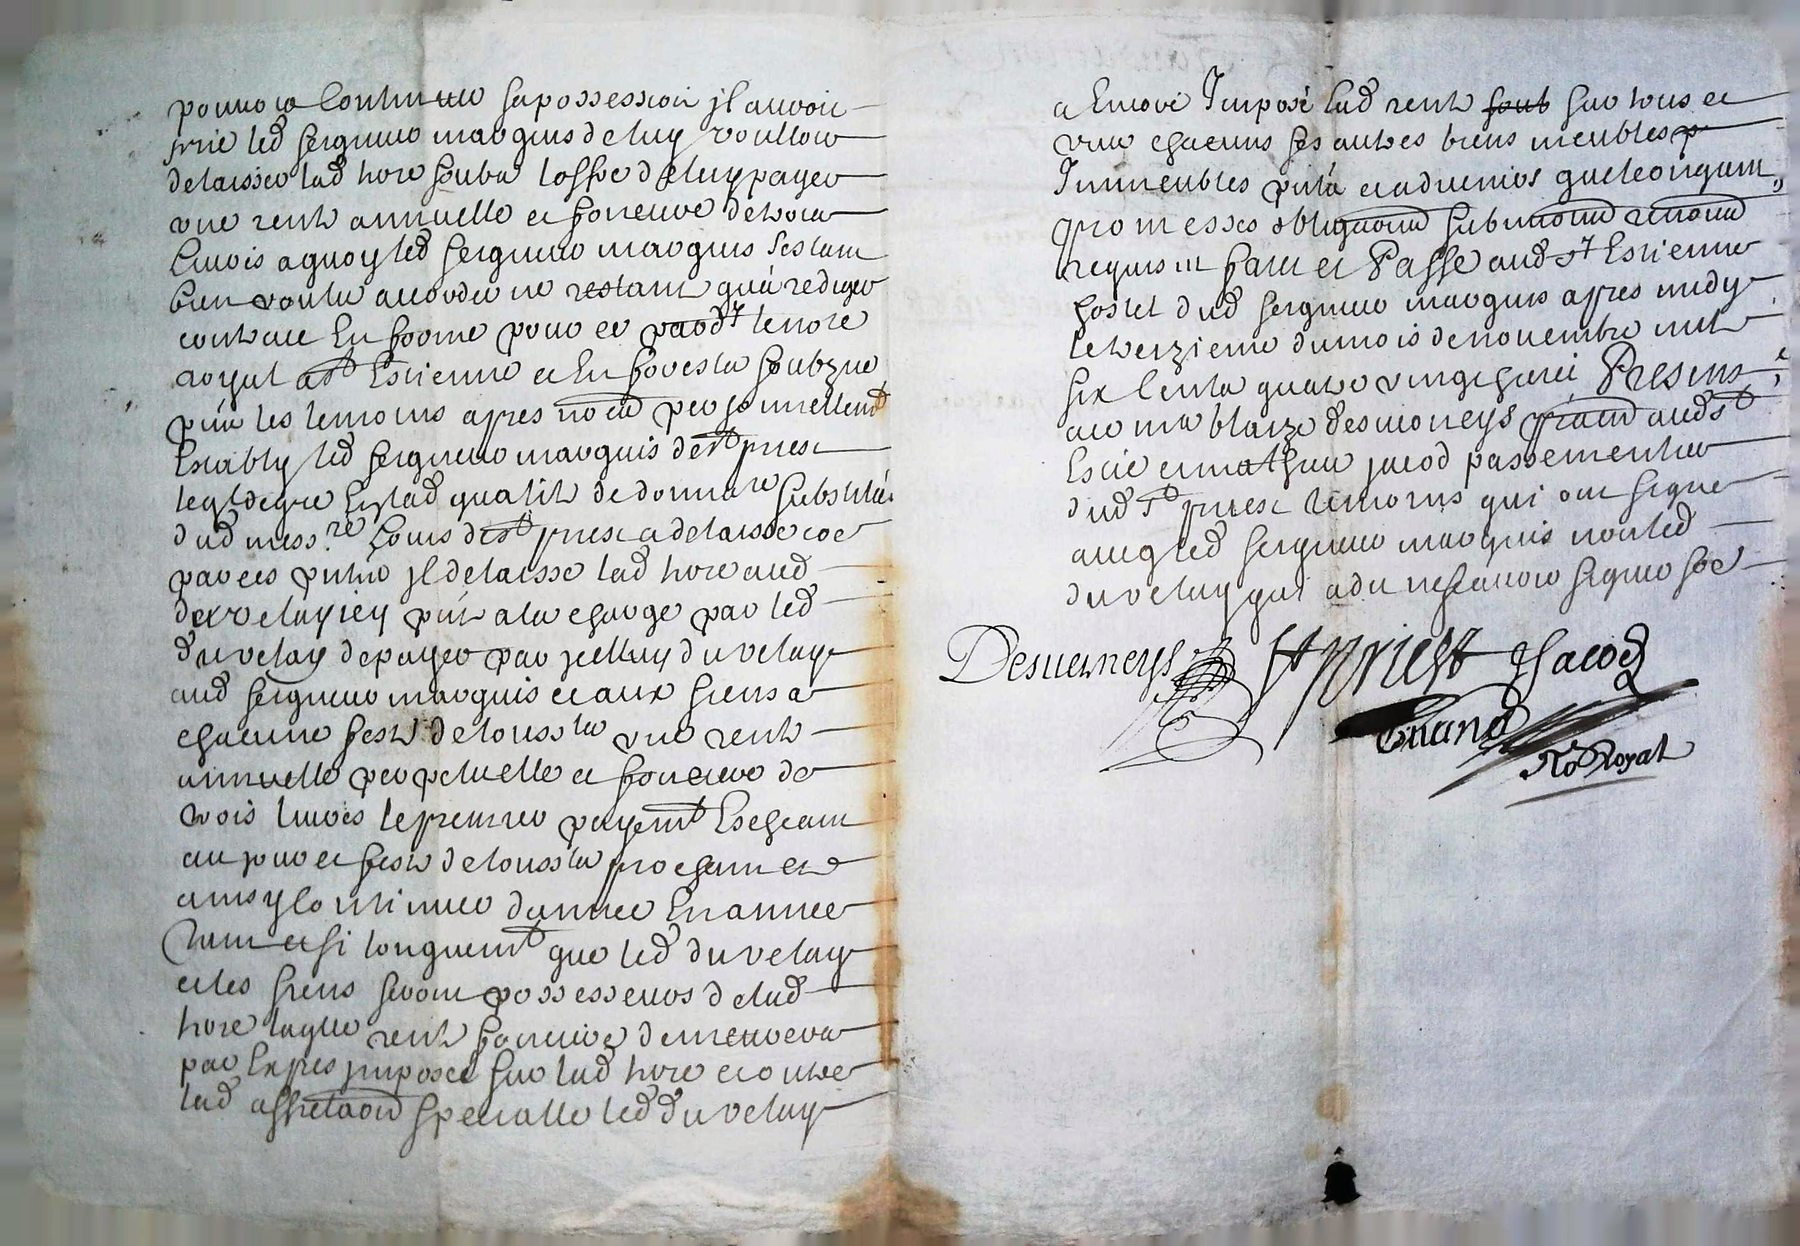 pouvoir continuer sa possession il auroit
prie led seigneur marquis de luy voulloir
delaisser lad hore soubz loffre de luy payer
une rente annuelle et fonciere de trois
livres a quoy led seigneur marquis sestant
bien voulu accorder ne restant qu'a rediger
contract en forme pour ce pardt le nore
royal a st Estienne et en forests soubzne
pnt les temoins apres nomd personnellemt
Estably led seigneur marquis de st priest
leql de gre en lad qualite de donnare substitue
dud messre Louis de st priest a delaisse coe
par ces pntes il delaisse lad hore aud
duvelay icy pnt a la charge par led
duvelay de payer par icelluy duvelay
aud seigneur marquis et aux siens a
chacune feste de toussts une rente
annuelle perpetuelle et fonciere de
trois livres le premier payemt Escheant
au jour et feste de toussts prochain et
ainsy continuer d'annee en annee
tant et si longuemt que led duvelay
et les siens seront possesseurs de lad
hore laqlle rente fonciere demeurera
par expres imposee sur lad hore et outre
lad affectaon specialle led duvelay
a encore Impose lad rente sur tous et
un chacuns ses autres biens meubles
Immeubles pnts et advenirs quelconques
promesses obligaons submissions renonaons
requis ... fait et Passe aud st Estienne
hostel dud seigneur marquis apres midy
le treizieme du mois de novembre mil
six cents quatre vingt Presens
me blaize desverneys aud st
Estie et mathieu jacod passementier
dud st priest temoins qui ont signe
avecq led seigneur marquis non led
duvelay qui a dit ne scavoir signer soe
Desverneys St priest Jacod
No Royal